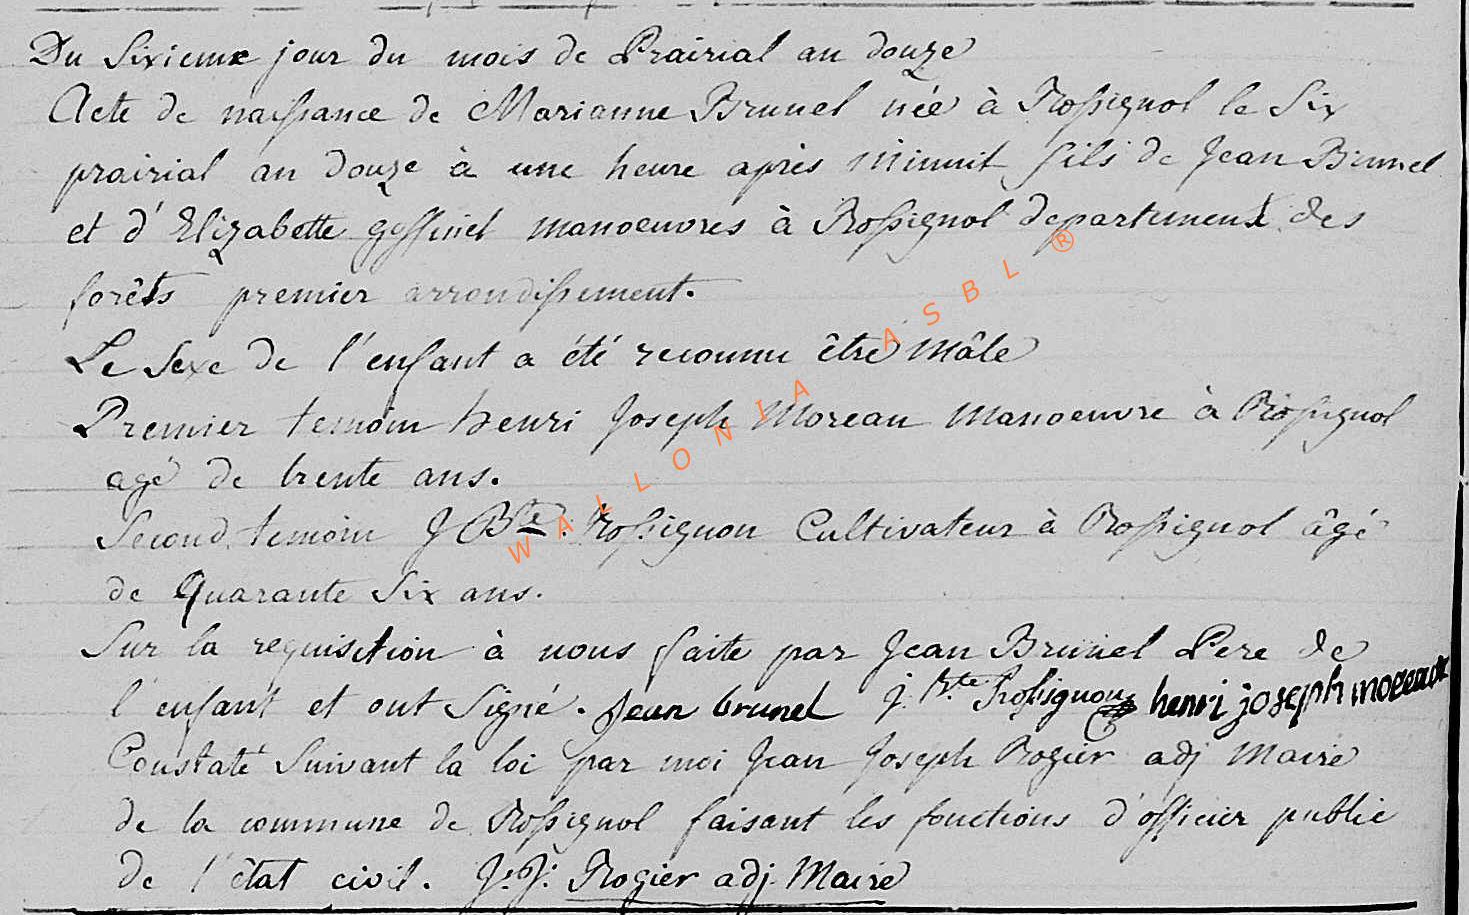 Du Sixieme jour du mois de Prairial an douze
Acte de naissance de Marianne Brunel née à Rossignol le Six
prairial an douze à une heure après minuit fils de Jean Brunel
et d'Elizabette goffinet manoeuvres à Rossignol departement des
forêts premier arrondissement.
Le Sexe de l'enfant a été reconnu être mâle
Premier temoin henri Joseph Moreau manoeuvre à Rossignol
agé de trente ans.
Second temoin J Bte. Rossignon Cultivateur à Rossignol âgé
de Quarante Six ans.
Sur la requisition à nous faite par Jean Brunel Pere de
l'enfant et ont Signé. jean brunel j. bte Rossignon henri joseph moreaux
Constaté Suivant la loi par moi Jean Joseph Rogier adj Maire
de la commune de Rossignol faisant les fonctions d'officier public
de l'êtat civil. J. J. Rogier adj. Maire
WALLONIA ASBL ®